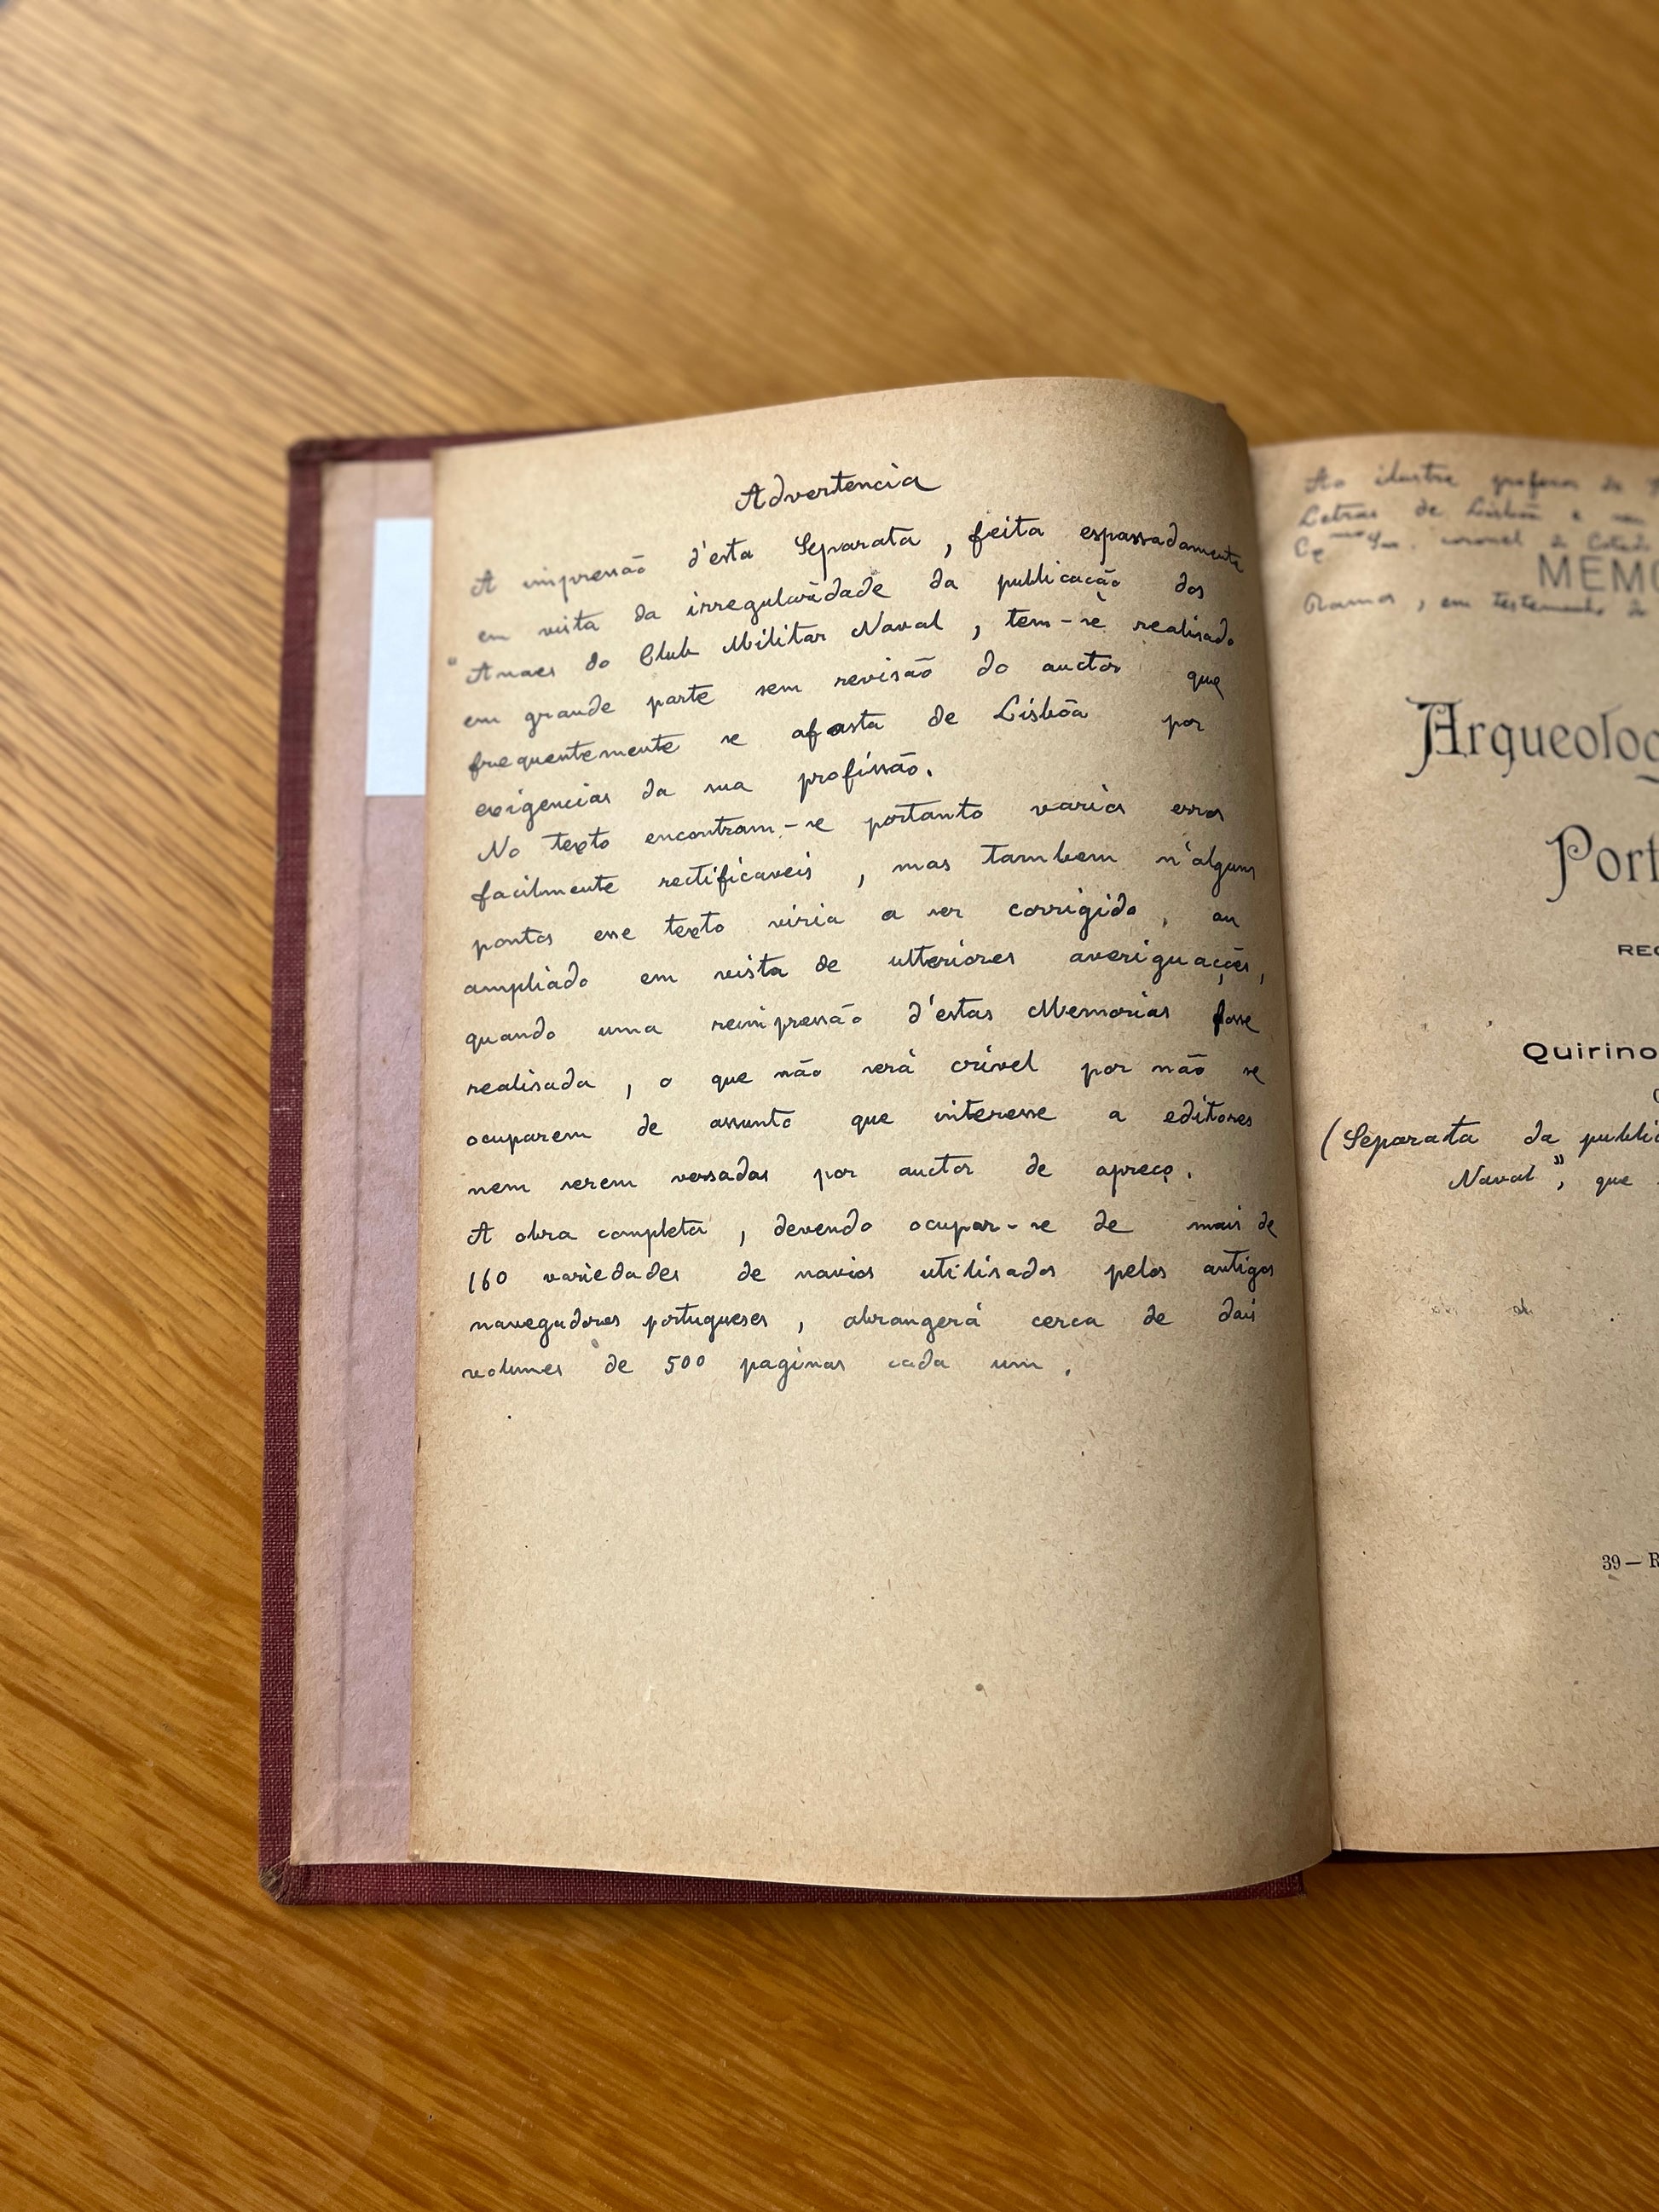 Advertencia
A impressão d'esta Separata, feita espassadamente
em vista da irregularidade da publicação dos
"Anaes do Club Militar Naval, tem-se realisado
em grande parte sem revisão do auctor que
frequentemente se afasta de Lisbôa por
exigencias da sua profissão.
No texto encontram-se portanto varios erros
facilmente rectificaveis, mas tambem n'alguns
pontos esse texto viria a ser corrigido, ou
ampliado em vista de ulteriores averiguações,
quando uma reimpressão d'estas Memorias fosse
realisada, o que não será crivel por não se
ocuparem de assunto que interesse a editores
nem serem versadas por auctor de apreço.
A obra completa, devendo ocupar-se de mais de
160 variedades de navios utilisados pelos antigos
navegadores portugueses, abrangerá cerca de dois
volumes de 500 paginas cada um.
Ao ilustre professor da
Letras de Lisbôa e
coronel do Estado
MEMO
Ramos, em testemunho de
Arqueolog
Port
REC
Quirino
(Separata da public
Naval", que
39 — R